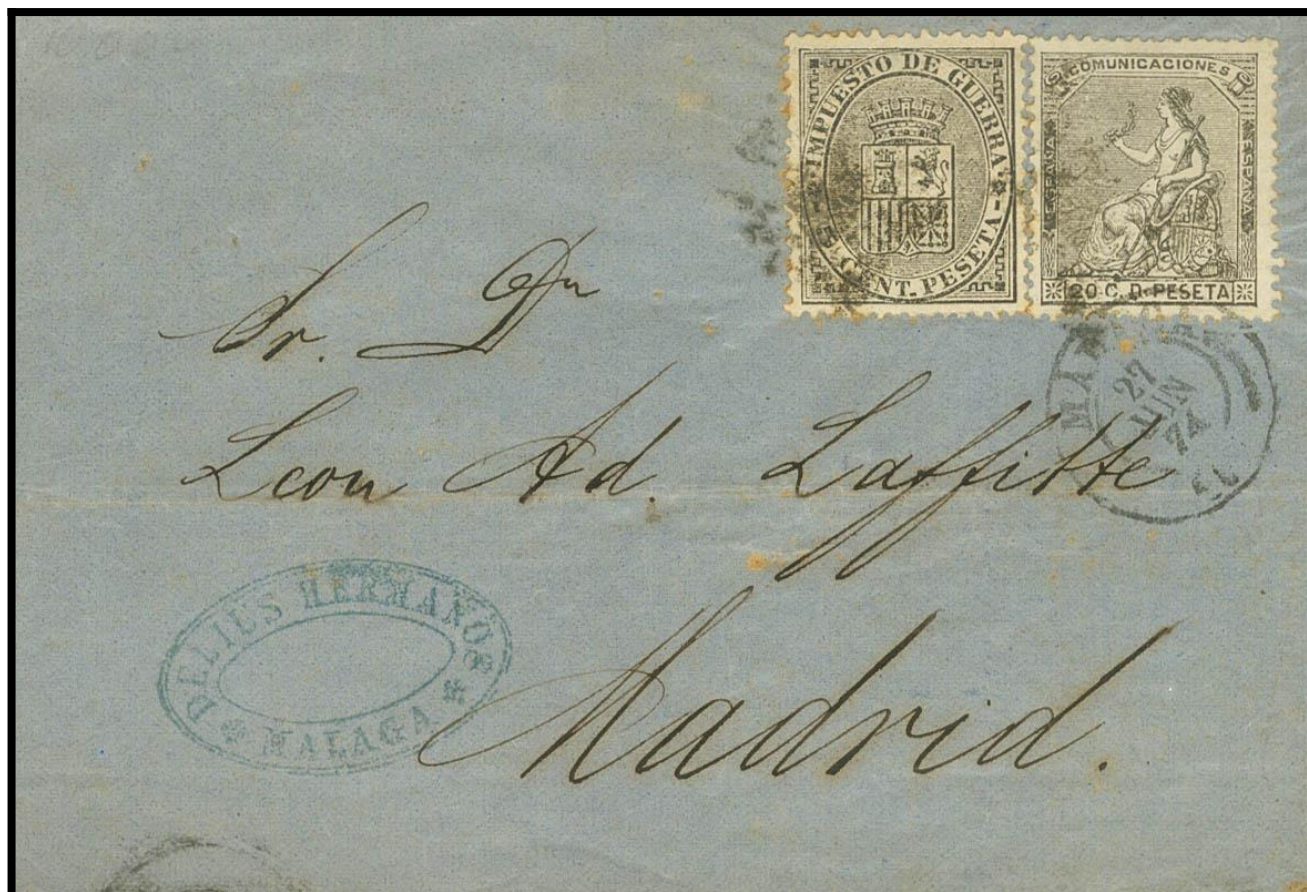 IMPUESTO DE GUERRA
5 CENT. PESETA
COMUNICACIONES
ESPAÑA
ESPAÑA
20 C. D. PESETA
27
JUN
74
Sr. Dn
Leon Ad. Laffitte
Madrid.
DELIUS HERMANOS
MALAGA